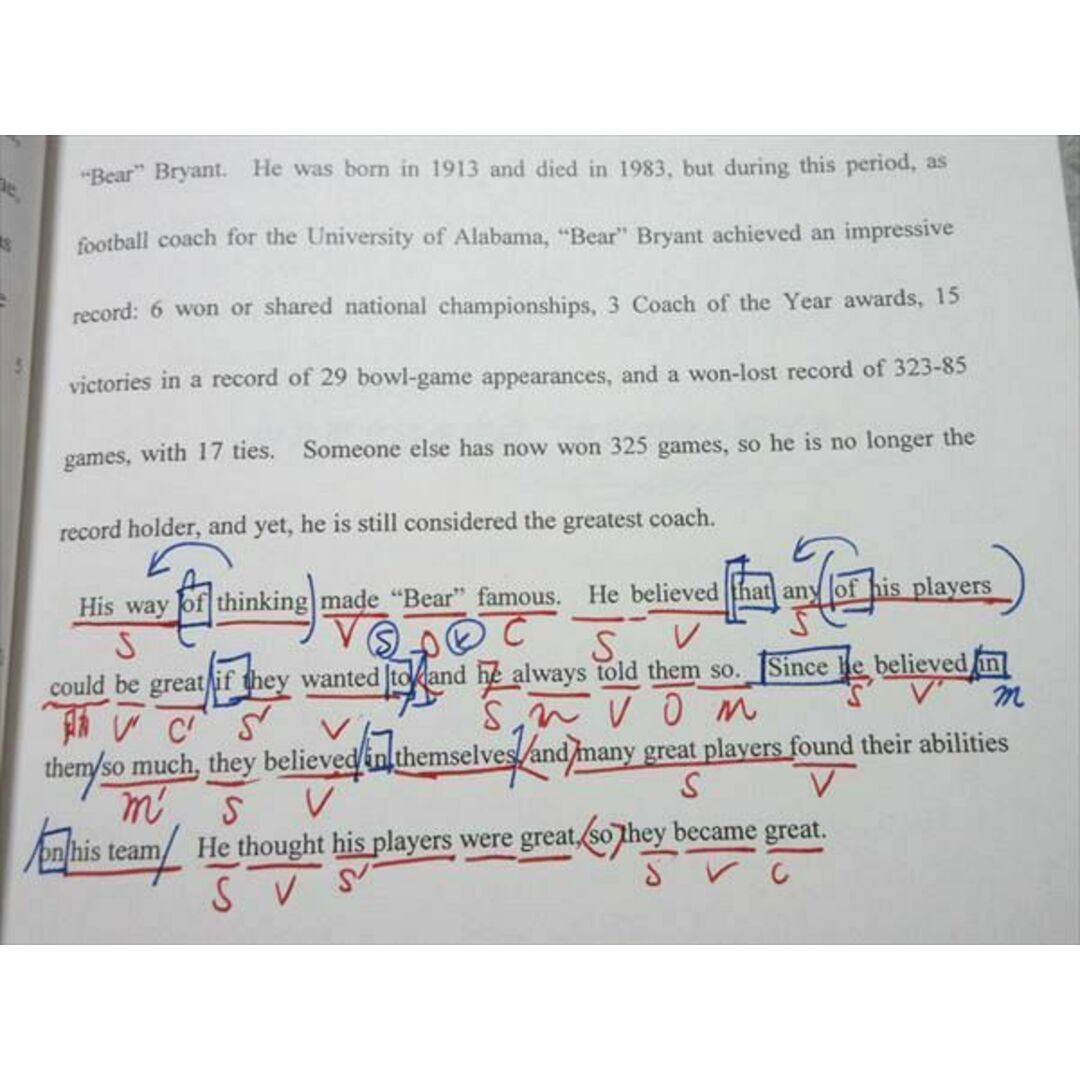 "Bear" Bryant. He was born in 1913 and died in 1983, but during this period, as
football coach for the University of Alabama, "Bear" Bryant achieved an impressive
record: 6 won or shared national championships, 3 Coach of the Year awards, 15
victories in a record of 29 bowl-game appearances, and a won-lost record of 323-85
5
games, with 17 ties. Someone else has now won 325 games, so he is no longer the
record holder, and yet, he is still considered the greatest coach.
His way of thinking made "Bear" famous. He believed that any of his players
S V S O V C S V S
could be great if they wanted to, and he always told them so. Since he believed in
助 V' C' S' V S m V O m S' V' m
them so much, they believed in themselves, and many great players found their abilities
m' S V S V
on his team. He thought his players were great, so they became great.
S V S' S V C